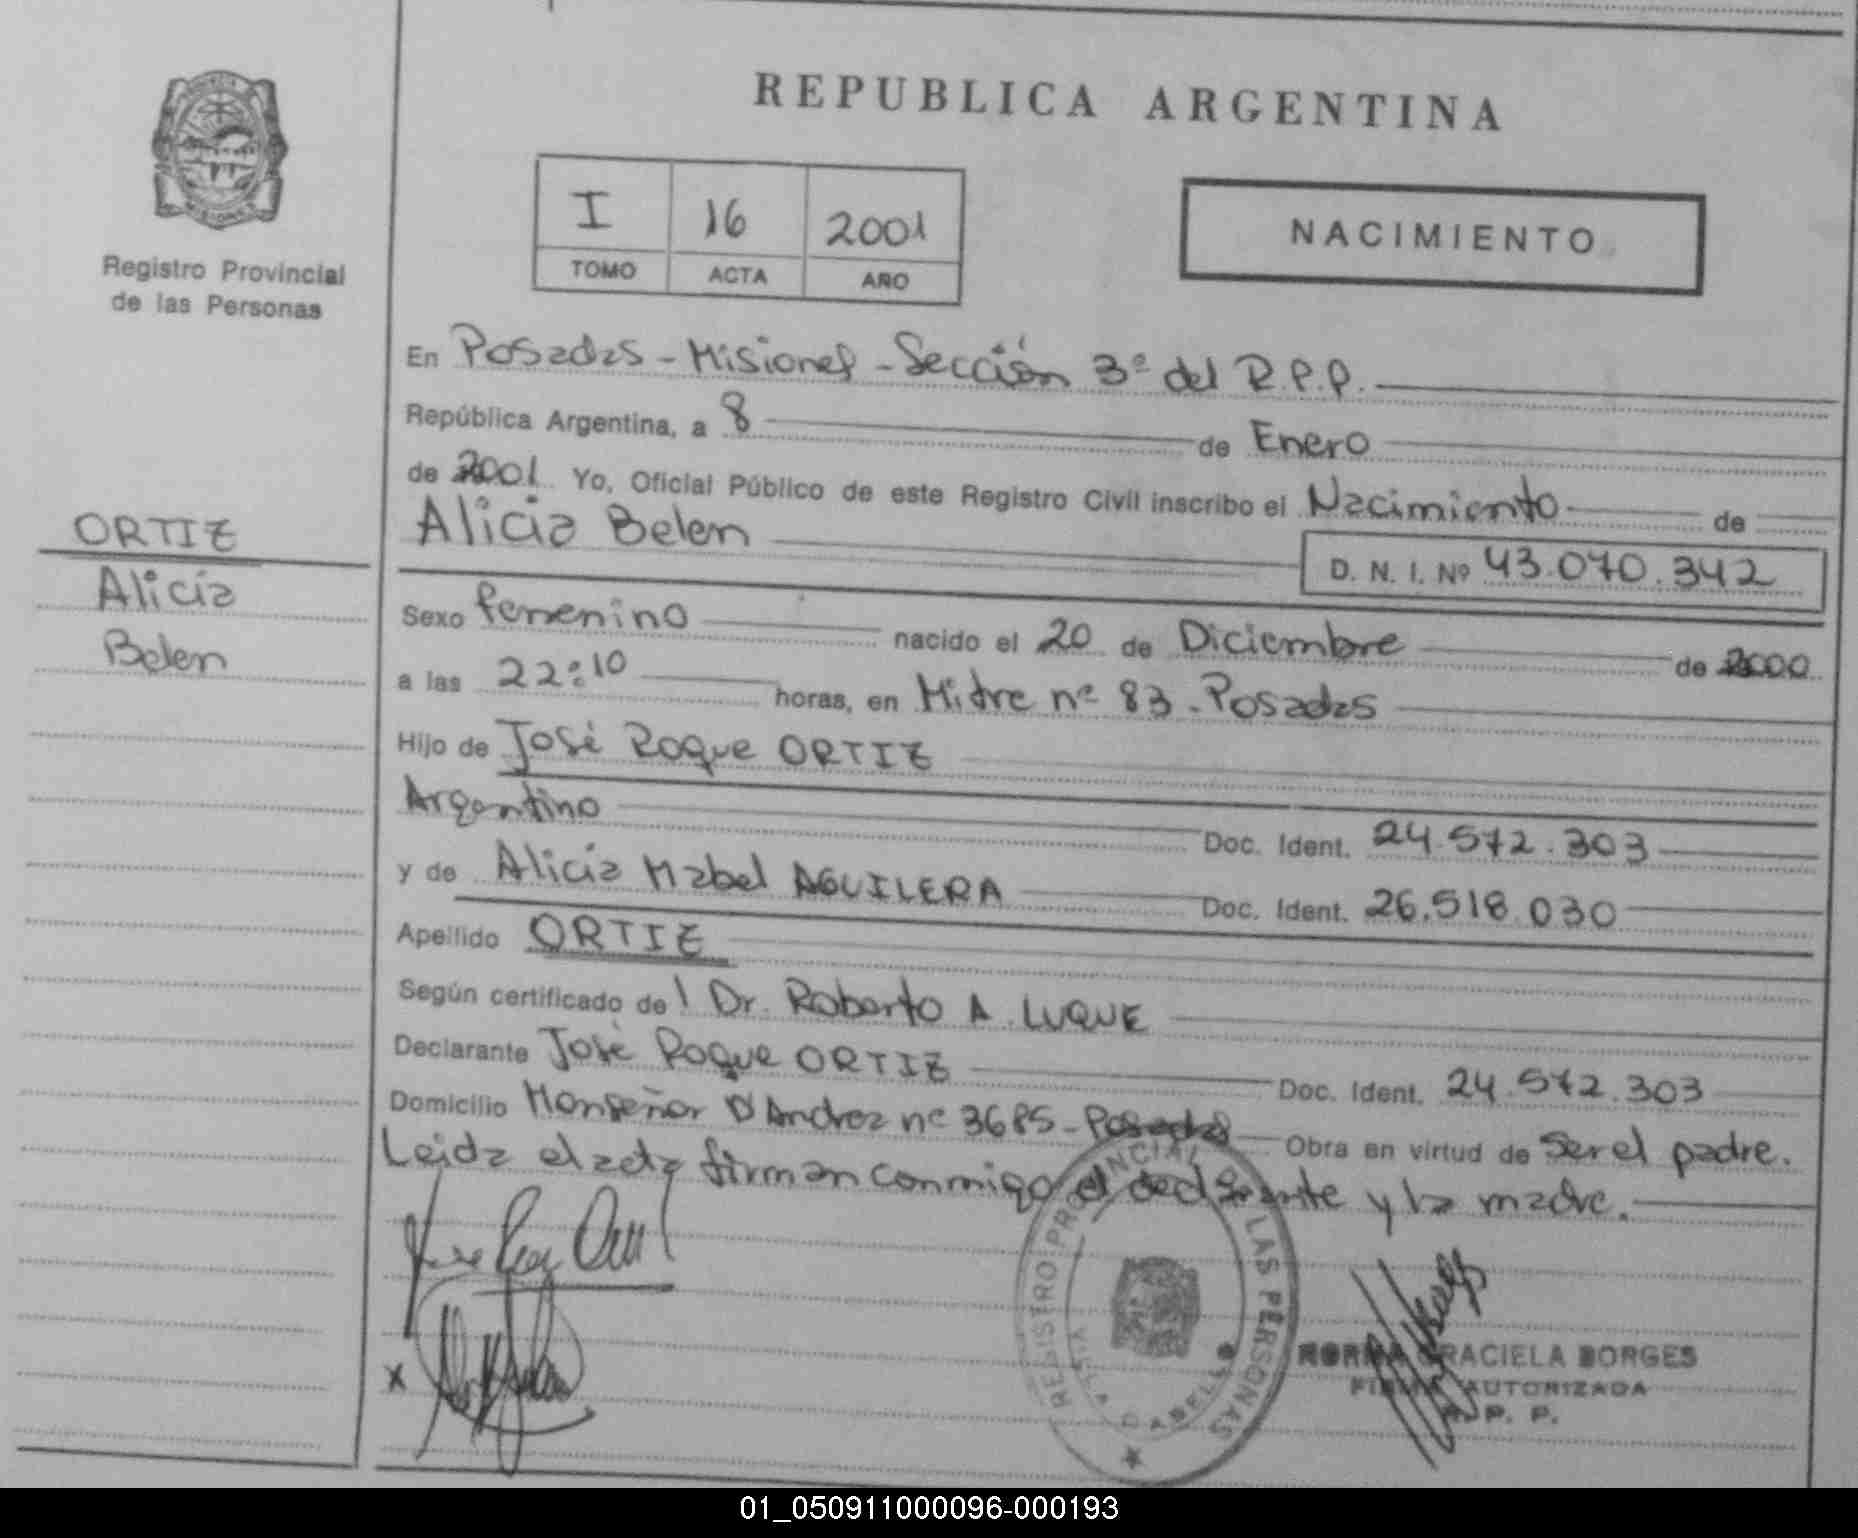 REPUBLICA ARGENTINA
I 16 2001
TOMO ACTA AÑO
NACIMIENTO
Registro Provincial
de las Personas
ORTIZ
Alicia
Belen
En Posadas - Misiones - Sección 3ª del R.P.P.
República Argentina, a 8 de Enero
de 2001. Yo, Oficial Público de este Registro Civil inscribo el Nacimiento de
Alicia Belen
D. N. I. Nº 43.070.342
Sexo femenino nacido el 20 de Diciembre de 2000
a las 22:10 horas, en Mitre nº 83 - Posadas
Hijo de José Roque ORTIZ
Argentino Doc. Ident. 24.572.303
y de Alicia Mabel AGUILERA Doc. Ident. 26.518.030
Apellido ORTIZ
Según certificado del Dr. Roberto A. LUQUE
Declarante José Roque ORTIZ Doc. Ident. 24.572.303
Domicilio Monseñor D'Andrea nº 3685 - Posadas Obra en virtud de Ser el padre.
Leida el acta firman conmigo el declarante y la madre.
REGISTRO PROVINCIAL DE LAS PERSONAS
VILLA CABELLO
X
NORMA GRACIELA BORGES
FIRMA AUTORIZADA
R. P. P.
01_050911000096-000193